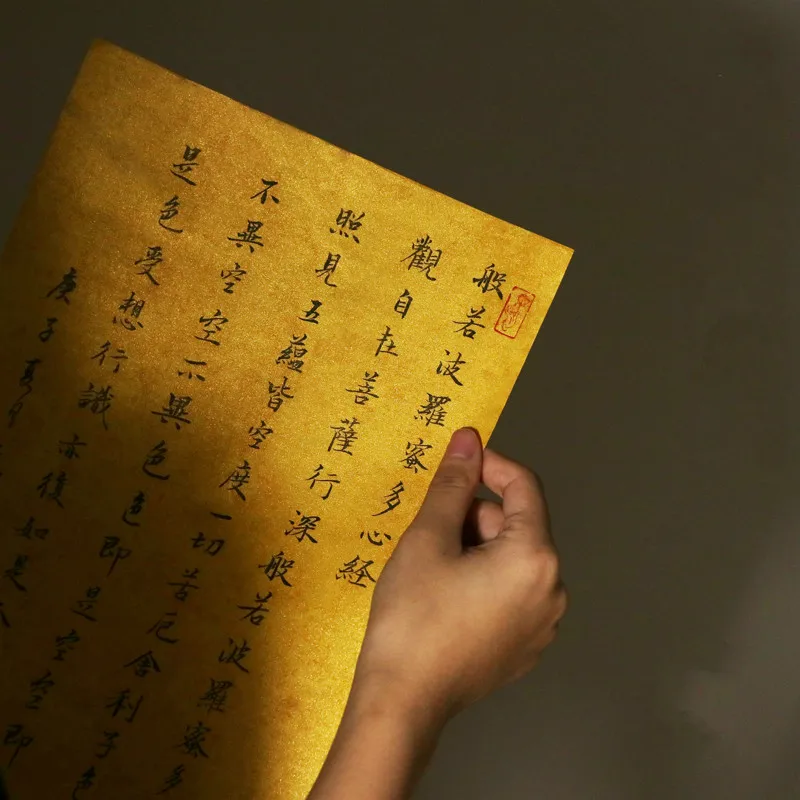 般若波羅蜜多心経
觀自在菩薩行深般若波羅蜜多
照見五蘊皆空度一切苦厄舍利子色
不異空空不異色色即是空空即
是色受想行識亦復如是
庚子夏